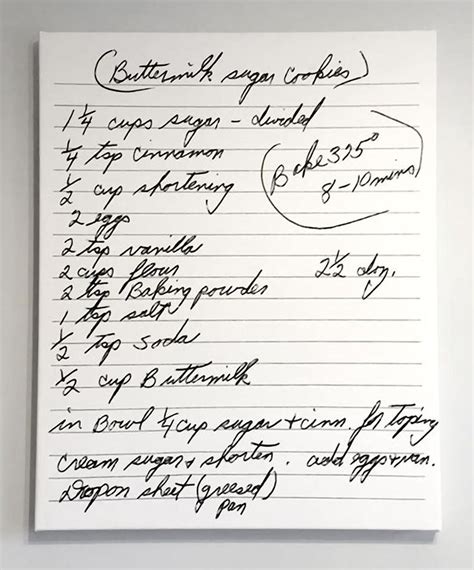 (Buttermilk sugar cookies)
1 1/4 cups sugar - divided
1/4 tsp cinnamon
1/2 cup shortening
2 eggs
Bake 375°
8-10 mins
2 tsp vanilla
2 cups flour
2 1/2 doz.
2 tsp Baking powder
1 tsp salt
1/2 tsp soda
1/2 cup Buttermilk
in Bowl 1/4 cup sugar + cinn. for toping
Cream sugar + shorten. add eggs + van.
Drop on sheet (greesed)
pan